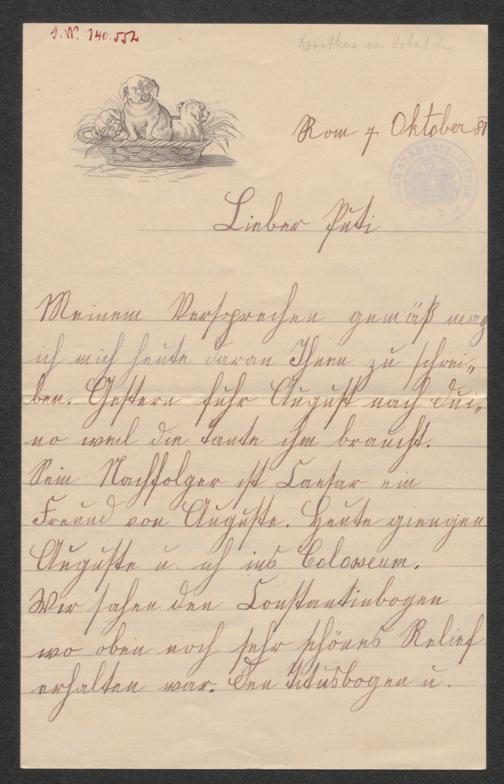 J. N. 140.552
Rom 7 Oktober 81
Lieber Puti
Meinem Versprechen gemäß mag
ich mich heute daran Ihnen zu schrei„
ben. Gestern fuhr August nach Dui„
no weil die Tante ihn braucht.
Sein Nachfolger ist Caesar ein
Freund von Auguste. Heute giengen
Auguste u. ich ins Colosseum.
Wir sahen den Constantinbogen
wo oben noch sehr schönes Relief
erhalten war. Den Titusbogen u.